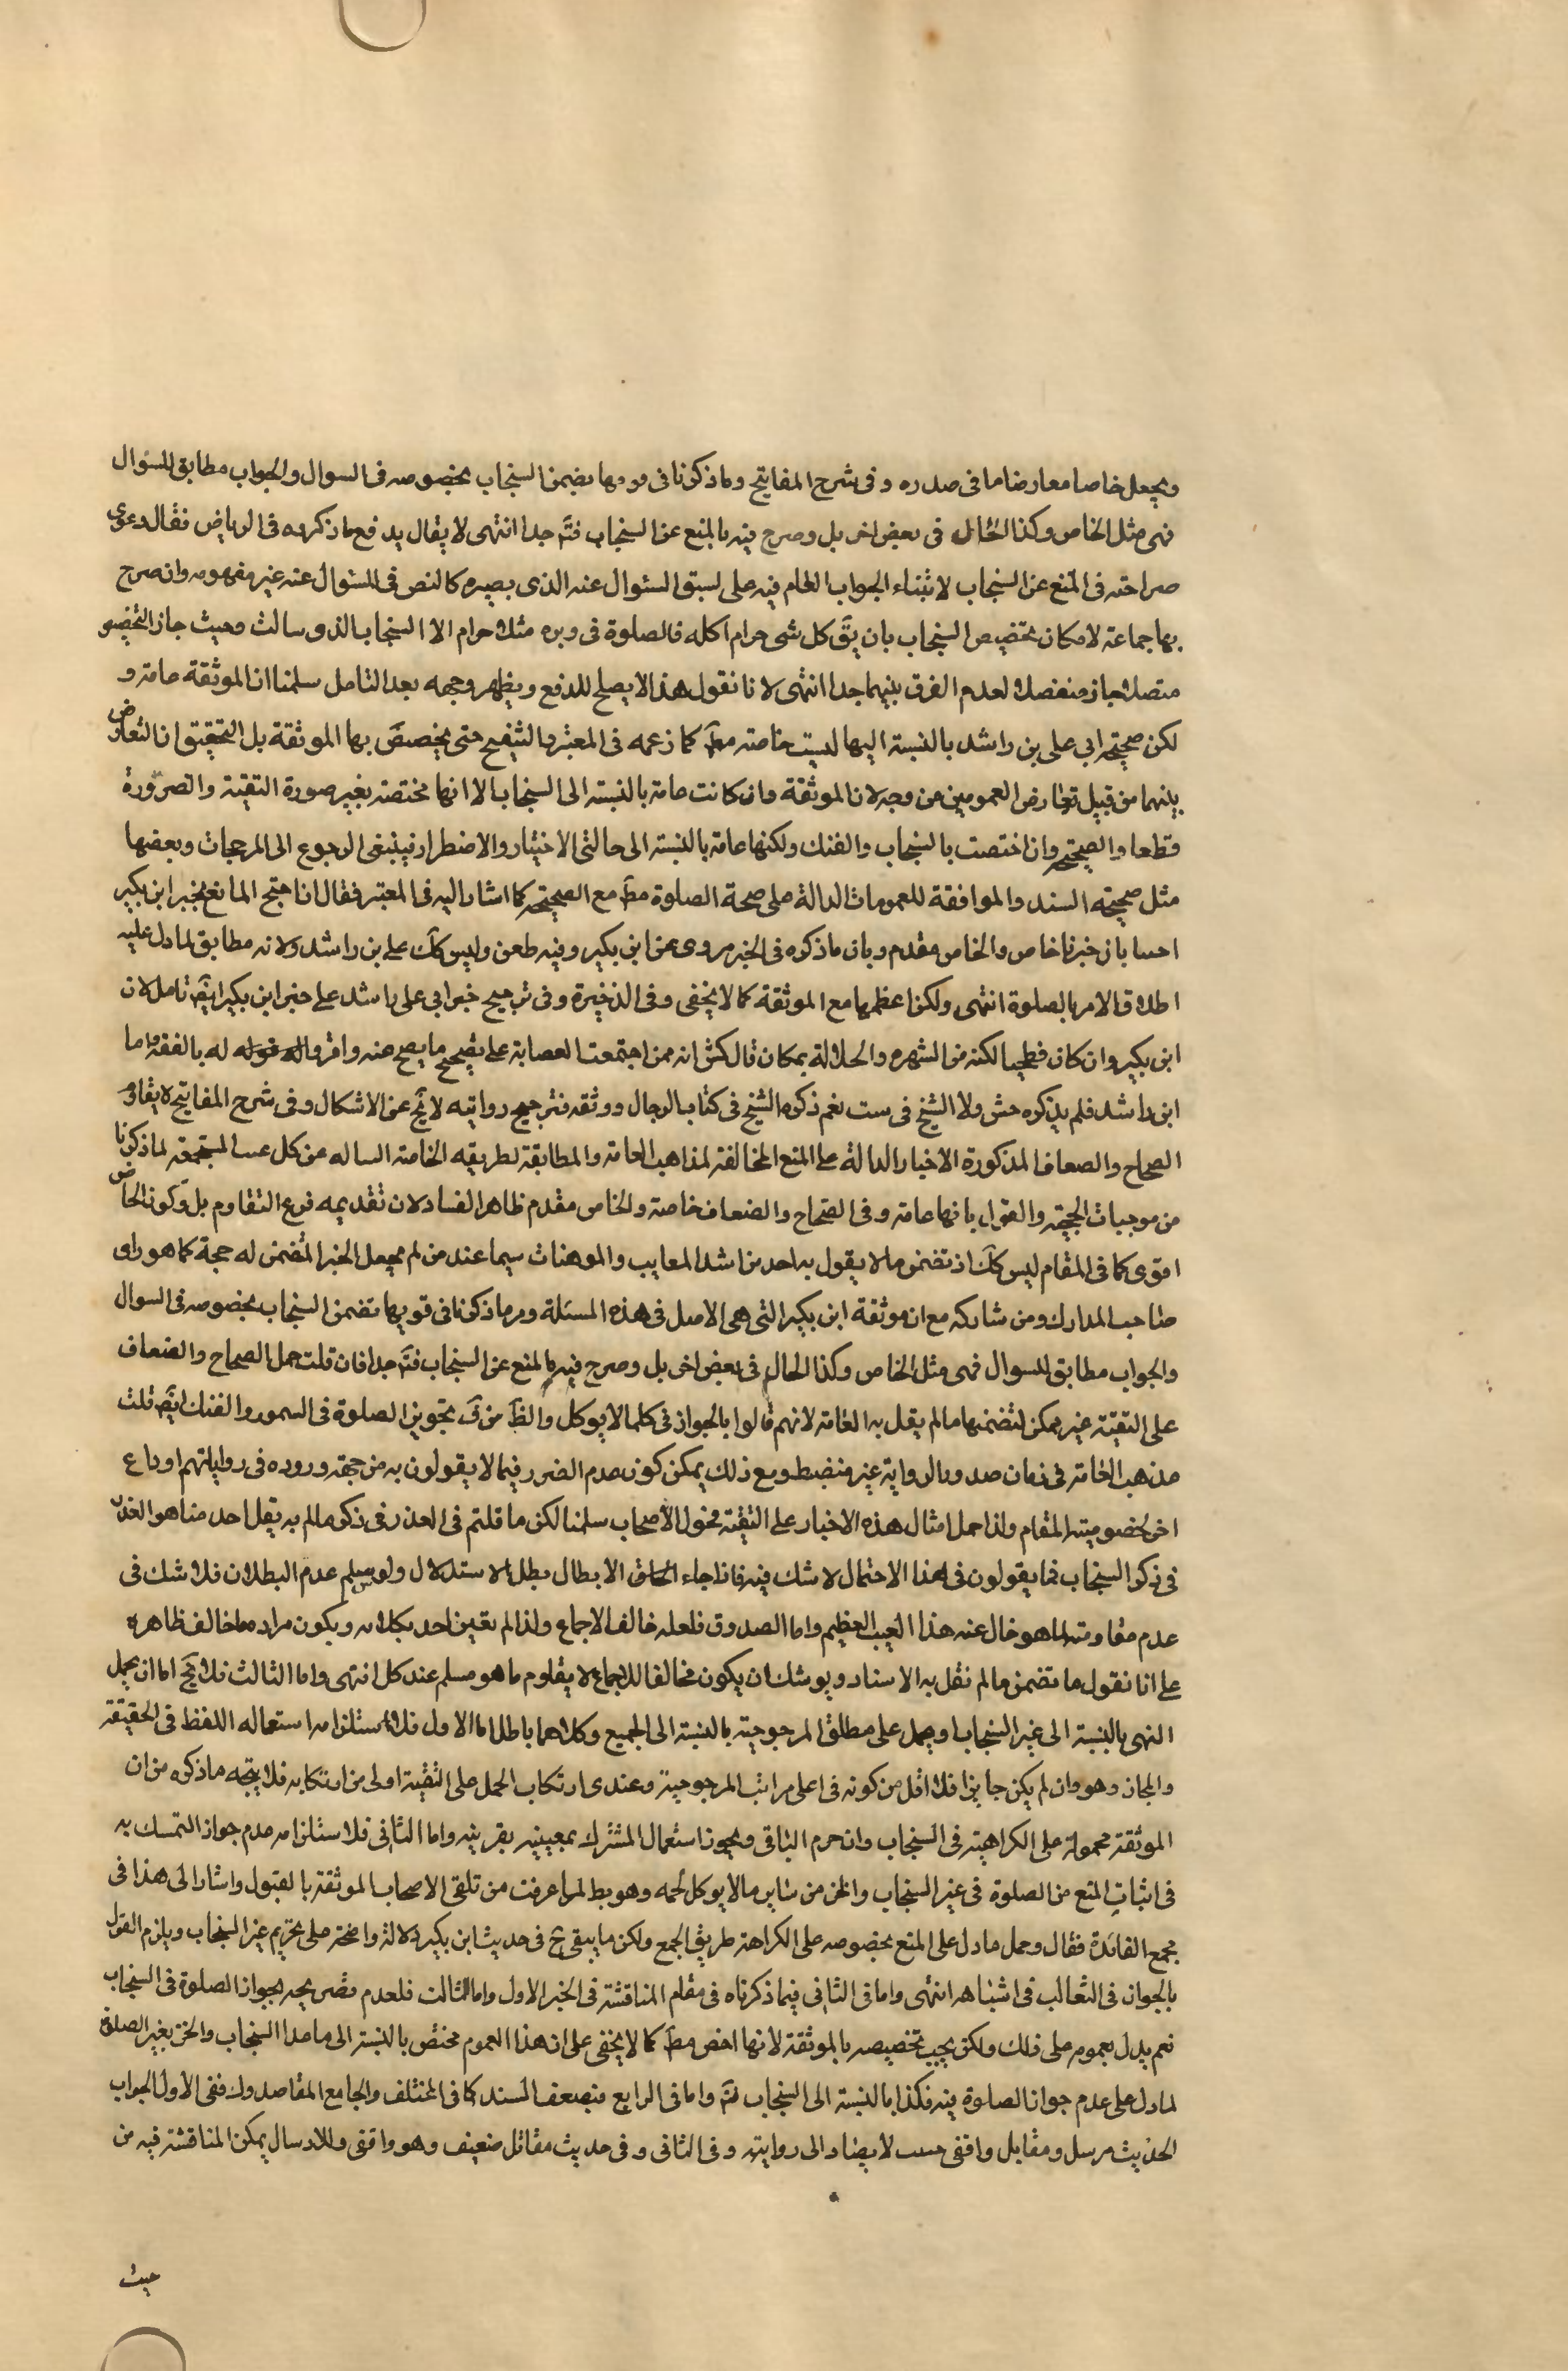 ويجعل خاصا معارضا ما فى صدره وفى شرح المفاتيح وما ذكرنا فى يضمن السنجاب بخصوصه فى السوال والجواب مطابق للسئوال
فهى مثل الخاص وكذا الحال فى بعض اخر بل وصرح فيه بالمنع عن السنجاب فتم جدا انتهى لا يقال يدفع ما ذكره فى الرياض فقال ودعوى
صراحته فى المنع عن السنجاب لا بتناء الجواب العام فيه على لسبق السئوال عنه الذى يصيره كالنص فى المسئوال عنه غير مفهومه وان صرح
بها جماعة لامكان تخصيص السنجاب بان يق كل شى حرام اكله فالصلوة فى وبره مثلا حرام الا السنجاب الذى سالت وحيث جاز التخصيص
متصلا جاز منفصلا لعدم الفرق بينهما جدا انتهى لانا نقول هذا لا يصلح للدفع ويظهر وجهه بعد التامل سلمنا ان الموثقة عامة و
لكن صحيحة ابى على بن راشد بالنسبة اليها ليست خاصة مط كما زعمه فى المعتبر والتنقيح حتى يخصص بها الموثقة بل التحقيق ان التعارض
بينهما من قبيل تعارض العمومين من وجه لان الموثقة وان كانت عامة بالنسبة الى السنجاب الا انها مختصة بغير صورة التقية والضرورة
قطعا والصحيحة وان اختصت بالسنجاب والفنك ولكنها عامة بالنسبة الى حالتى الاختيار والاضطرار فينبغى الرجوع الى المرجحات وبعضها
مثل صحيحة السند والموافقة للعمومات الدالة على صحة الصلوة مط مع الصحيحة كما اشار اليه فى المعتبر فقال ان احتج المانع بخبر ابن بكير
اجبنا بان خبرنا خاص والخاص مقدم وبان ما ذكروه فى الخبر مروى عن ابن بكير وفيه طعن وليس كك على بن راشد ولانه مطابق لما دل عليه
اطلاق الامر بالصلوة انتهى ولكن اعظمها مع الموثقة كما لا يخفى وفى الذخيرة وفى ترجيح خبر ابى على راشد على خبر ابن بكير ايض تامل لان
ابن بكير وان كان فطحيا لكنه من الشهره والجلالة بمكان قال كش انه ممن اجتمعت العصابة على تصحيح ما يصح عنه واقروا له بالفقه واما
ابن راشد فلم يذكره جش ولا الشيخ فى ست نعم ذكره الشيخ فى كتاب الرجال ووثقه فترجيح روايته لا يخ عن الاشكال وفى شرح المفاتيح لا يقاوم
الصحاح والضعاف المذكورة الاخبار الدالة على المنع المخالفة لمذاهب العامة والمطابقة لطريقه الخاصة السالمه من كل عيب المستجمعة لما ذكرنا
من موجبات الحجية والقول بانها عامة وفى الصحاح والضعاف خاصة والخاص مقدم ظاهر الفساد لان تقديمه فرع التقاوم بل وكون الخاص
اقوى كما فى المقام ليس كك اذ تضمن ما لا يقول به احد من اشد المعايب والموهنات سيما عند من لم يجعل الخبر المتضمن له حجة كما هو راى
صاحب المدارك ومن شاركه مع ان موثقة ابن بكير التى هى الاصل فى هذه المسئلة ومر ما ذكرنا فى قويها تضمن السنجاب بخصوصه فى السوال
والجواب مطابق للسوال فهى مثل الخاص وكذا الحال فى بعض اخر بل وصرح فيه بالمنع عن السنجاب فتم جدا فان قلت حمل الصحاح والضعاف
على التقية غير ممكن لتضمنها ما لم يقل به العامة لانهم قالوا بالجواز فى كلما لا يوكل والظ من ق تجويز الصلوة فى السمور والفنك ايض قلت
مذهب العامة فى زمان صدور الرواية غير منضبط ومع ذلك يمكن كون عدم الضرر فيما لا يقولون به من جهة وروده فى رواياتهم او داع
اخر لخصوصية المقام ولذا حمل امثال هذه الاخبار على التقية فحول الاصحاب سلمنا لكن ما قلتم فى العذر فى ذكر ما لم به يقل احد منا هو العذر
فى ذكر السنجاب فما يقولون فى هذا الاحتمال لا شك فيه فاذا جاء الابطال بطل الاستدلال ولو سلم عدم البطلان فلا شك فى
عدم مقاومته لما هو خال عنه هذا العيب العظيم واما الصدوق فلعله خالف الاجماع ولذا لم يعتن احد بكلامه ويكون مراده ما خالف ظاهره
على انا نقول ما تضمن ما لم نقل به الاسناد ويوشك ان يكون مخالفا للاجماع لا يقاوم ما هو مسلم عند كل انتهى واما الثالث فلا يخ اما ان يحمل
النهى بالنسبة الى غير السنجاب او يحمل على مطلق المرجوحية بالنسبة الى الجميع وكلاهما باطل اما الاول فلاستلزامه استعماله اللفظ فى الحقيقة
والمجاز وهو وان لم يكن جايزا فلا اقل من كونه فى اعلى مراتب المرجوحية وعندى ارتكاب الحمل على التقية اولى من ارتكابه فلا يتجه ما ذكره من ان
الموثقة محمولة على الكراهية فى السنجاب وان حرم الباقى ويجوز استعمال المشترك بمعنييه بقرينيه واما الثانى فلا ستلزامه عدم جواز التمسك به
فى اثبات المنع من الصلوة فى غير السنجاب والخز من ساير ما لا يوكل لحمه وهو بط لما عرفت من تلقى الاصحاب الموثقة بالقبول واشار الى هذا فى
مجمع الفائدة فقال وحمل ما دل على المنع بخصوصه على الكراهة طريق الجمع ولكن ما يبقى ح فى حديث ابن بكير دلالة واضحة على تحريم غير السنجاب ويلزم القول
بالجواز فى الثعالب فى اشباهه انتهى واما فى الثانى فيما ذكرناه فى مقام المناقشة فى الخبر الاول واما الثالث فلعدم تصريحه بجواز الصلوة فى السنجاب
نعم يدل بعمومه على ذلك ولكن يجب تخصيصه بالموثقة لانها اخص مط كما لا يخفى على ان هذا العموم مختص بالنسبة الى ما عدا السنجاب والخز بغير الصلوة
لما دل على عدم جواز الصلوة فيه فكذا بالنسبة الى السنجاب فتم واما فى الرابع فبضعف السند كما فى المختلف والجامع المقاصد وك ففى الاول الجواب
الحديث مرسل ومقاتل واقفى لا يصار الى روايته وفى الثانى وفى حديث مقاتل ضعيف وهو واقفى وللارسال يمكن المناقشة فيه من
حيث